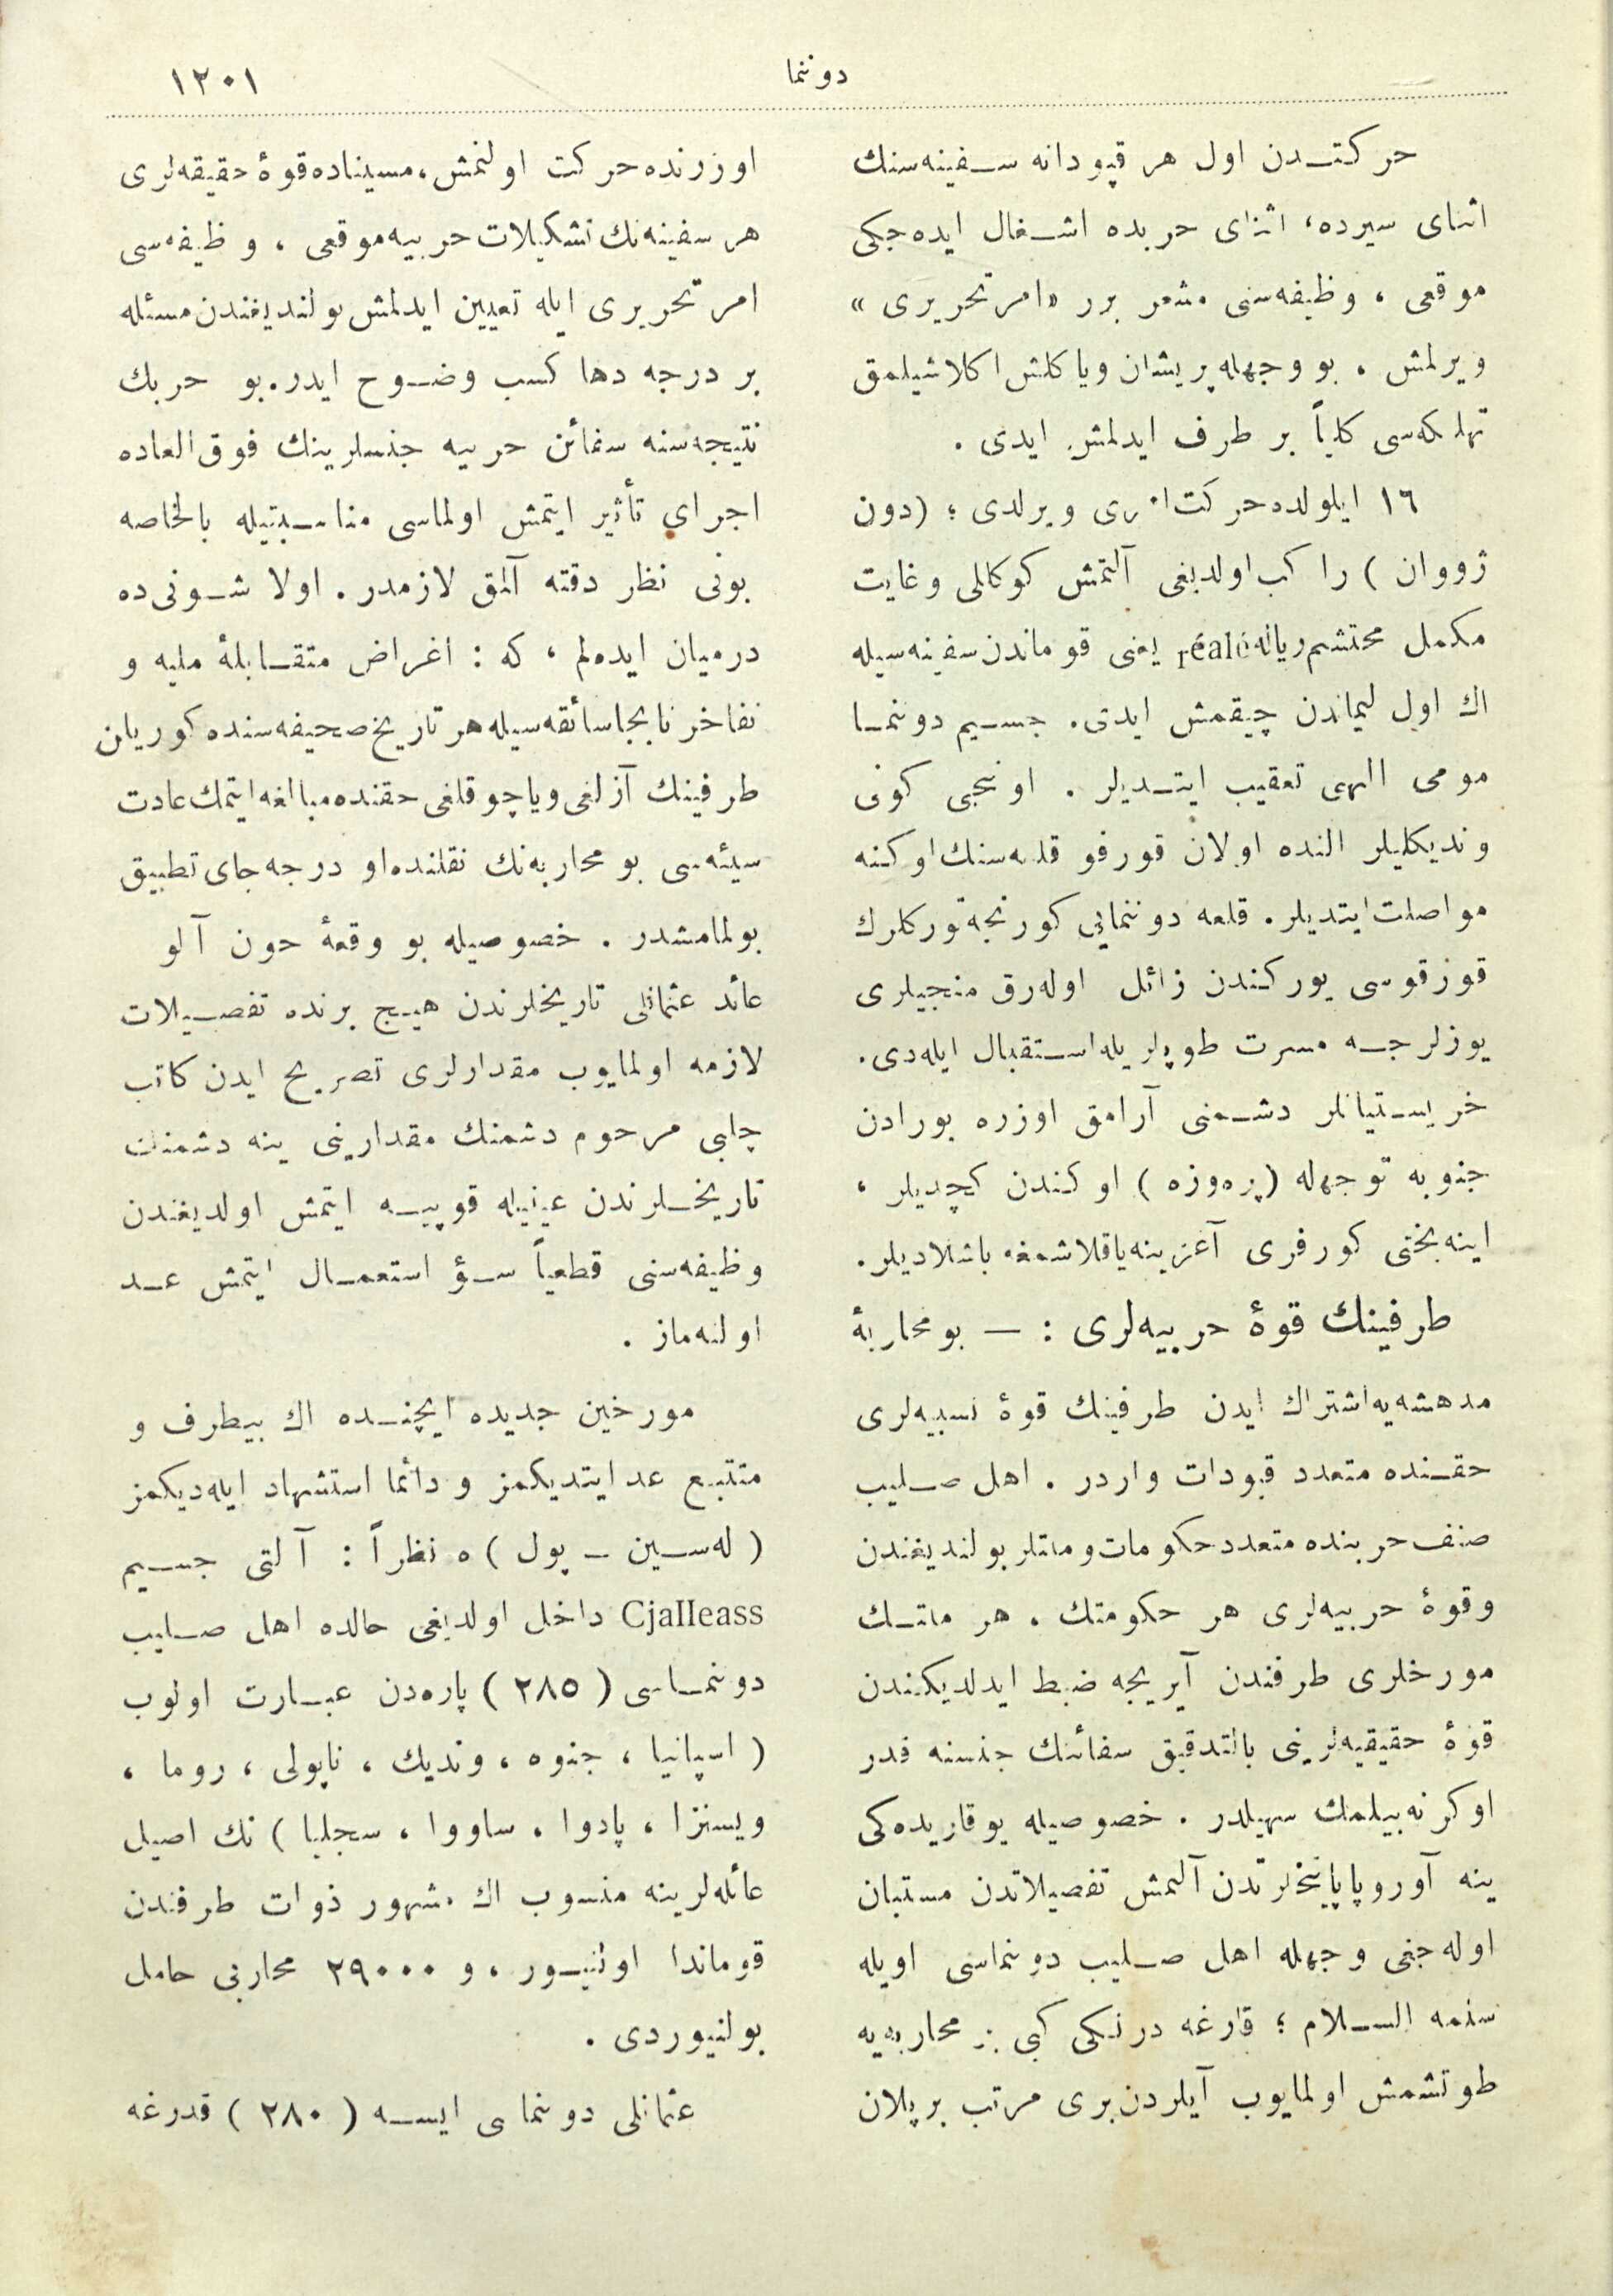 دوننما
١٢٠١
حركتـدن اول هر قپودانه سـفينه‌سنك
اثنای سيرده، اثنای حربده اشـغال ايده‌جكی
موقعی ، وظيفه‌سنی مشعر برر «امر تحريری»
ويرلمش . بو وجهله پريشان ويا كلش اكلاشيلمق
تهلكه‌سی كلياً بر طرف ايدلمش ايدی .
١٦ ايلولده حركت امری ويرلدی ؛ (دون
ژووان ) راكب اولديغی آلتمش كوكالی وغايت
مكمل محتشم رياله réale يعنی قوماندن سفينه‌سيله
اك اول ليماندن چيقمش ايدی . جسـيم دوننمـا
مومی اليهی تعقيب ايتـديلر . اونجی كونی
ونديكليلر النده اولان قورفو قلعه‌سنك اوكنه
مواصلت ايتديلر . قلعه دوننمايی كورنجه توركلرك
قورقوسی يوركندن زائل اوله‌رق منجيلری
يوزلرجـه مسرت طوپلريله اسـتقبال ايله‌دی .
خريسـتيانلر دشـمنی آرامق اوزره بورادن
جنوبه توجهله (پره‌وزه ) اوكندن كچديلر ،
اينه‌بختی كورفزی آغزينه ياقلاشمغه باشلاديلر .
طرفينك قوۀ حربيه‌لری : — بو محاربۀ
مدهشه‌يه اشتراك ايدن طرفينك قوۀ نسبيه‌لری
حقـنده متعدد قيودات واردر . اهل صـليب
صنف حربنده متعدد حكومات وملتلر بولنديغندن
وقوۀ حربيه‌لری هر حكومتك ، هر ملتـك
مورخلری طرفندن آيريجه ضبط ايدلديكندن
قوۀ حقيقيه‌لرينی بالتدقيق سفائنك جنسنه قدر
اوكرنه‌بيلمك سهيلدر . خصوصيله يوقاريده‌كی
ينه آوروپا تاريخلرندن آلنمش تفصيلاتدن مستبان
اوله‌جغی وجهله اهل صـليب دوننماسی اويله
سنمه السـلام ؛ قارغه درنكی كبی بر محاربه‌يه
طوتشمش اولمايوب آيلردن بری مرتب بر پلان
اوزرنده حركت اولنمش ، مسيناده قوۀ حقيقه‌لری
هر سفينه‌نك تشكيلات حربيه موقعی ، وظيفه‌سی
امر تحريری ايله تعيين ايدلمش بولنديغندن مسئله
بر درجه دها كسب وضـوح ايدر . بو حربك
نتيجه‌سنه سفائن حربيه جنسلرينك فوق العاده
اجرای تأثير ايتمش اولماسی مناسـبتيله بالخاصه
بونی نظر دقته آلمق لازمدر . اولا شـونی ده
درميان ايده‌لم ، كه : اغراض متقـابلۀ مليه و
تفاخر نابجا سائقه‌سيله هر تاريخ صحيفه‌سنده كوريلن
طرفينك آزلغی ويا چوقلغی حقنده مبالغه ايتمك عادت
سيئه‌سی بو محاربه‌نك نقلنده او درجه جای تطبيق
بولمامشدر . خصوصيله بو وقعۀ خون آلو
عائد عثمانلی تاريخلرندن هيـچ برنده تفصـيلات
لازمه اولمايوب مقدارلری تصريح ايدن كاتب
چلبی مرحوم دشمنك مقدارينی ينه دشمنك
تاريخـلرندن عينيله قوپيـه ايتمش اولديغندن
وظيفه‌سنی قطعياً سـؤ استعمـال ايتمش عـد
اولنه‌ماز .
مورخين جديده ايچنـده اك بيطرف و
متتبع عد ايتديكمز ودائما استشهاد ايله‌ديكمز
( له‌سـين ـ پول ) ه نظراً : آلتی جسـيم
Cjalleass داخل اولديغی حالده اهل صـليب
دوننمـاسی ( ٢٨٥ ) پاره‌دن عبـارت اولوب
( اسپانيا ، جنوه ، ونديك ، ناپولی ، روما ،
ويسنزا ، پادوا ، ساووا ، سجليا ) نك اصيل
عائله‌لرينه منسوب اك مشهور ذوات طرفندن
قوماندا اولنيـور ، و ٢٩٠٠٠ محاربی حامل
بولنيوردی .
عثمانلی دوننماسی ايسـه ( ٢٨٠ ) قدرغه